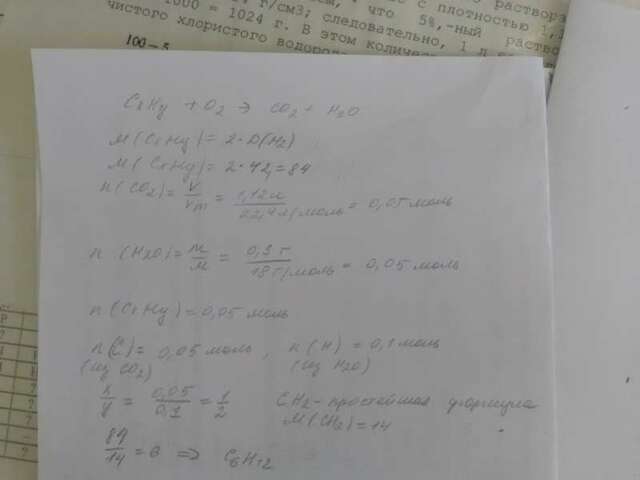 5%,-ный раство
1000 = 1024 г. В этом количе
чистого хлористого водоро
100-5
CxHy + O2 → CO2 + H2O
M(CxHy) = 2·D(H2)
M(CxHy) = 2·42 = 84
n(CO2) = V/Vm = 1,12л/22,4л/моль = 0,05 моль
n(H2O) = m/M = 0,9г/18г/моль = 0,05 моль
n(CxHy) = 0,05 моль
n(C) = 0,05 моль, n(H) = 0,1 моль
(из CO2) (из H2O)
x/y = 0,05/0,1 = 1/2 CH2 - простейшая формула
M(CH2) = 14
84/14 = 6 ⇒ C6H12